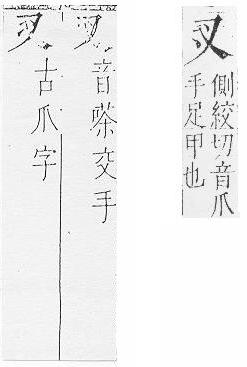 㕚
側絞切音爪
手足甲也
叉音交手
㕚古爪字